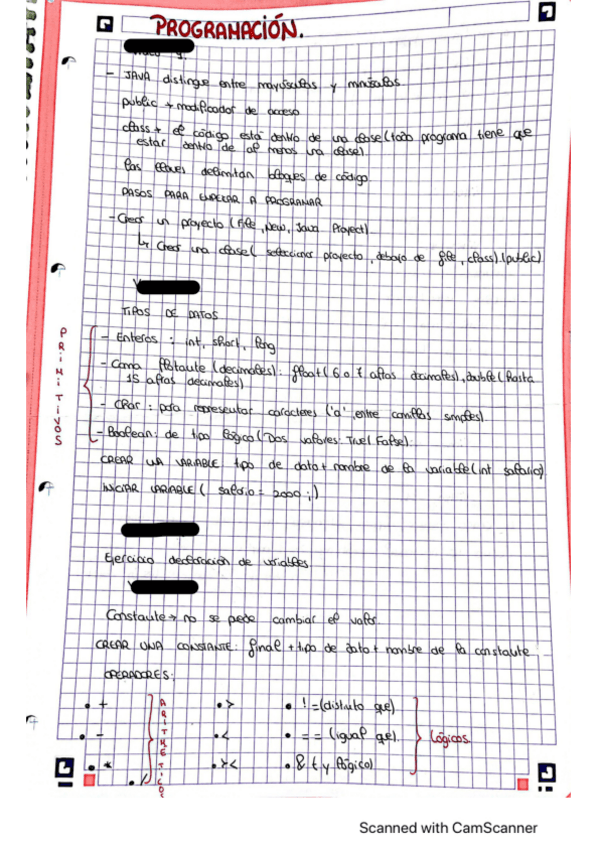 PROGRAMACIÓN.
- JAVA distingue entre mayúsculas y minúsculas
public → modificador de acceso
class → el código está dentro de una clase (todo programa tiene que
estar dentro de al menos una clase)
Las llaves delimitan bloques de código
PASOS PARA EMPEZAR A PROGRAMAR
- Crear un proyecto (File, New, Java Project)
↳ Crear una clase (seleccionar proyecto, debajo de file, class). (public)
TIPOS DE DATOS
PRIMITIVOS
- Enteros : int, short, long
- Coma flotante (decimales): float (6 o 7 cifras decimales), double (hasta
15 cifras decimales)
- Char : para representar caracteres ('a' entre comillas simples)
- Boolean: de tipo lógico (Dos valores: True/False).
CREAR UNA VARIABLE tipo de dato + nombre de la variable (int salario)
INICIAR VARIABLE ( salario = 2000 ;)
Ejercicio declaración de variables
Constante → no se pede cambiar el valor
CREAR UNA CONSTANTE: final + tipo de dato + nombre de la constante
OPERADORES:
• + • > • != (distinto que)
• - • < • == (igual que)
• * • >< • & ( y lógico)
• /
ARITMETICOS
Lógicos.
Scanned with CamScanner